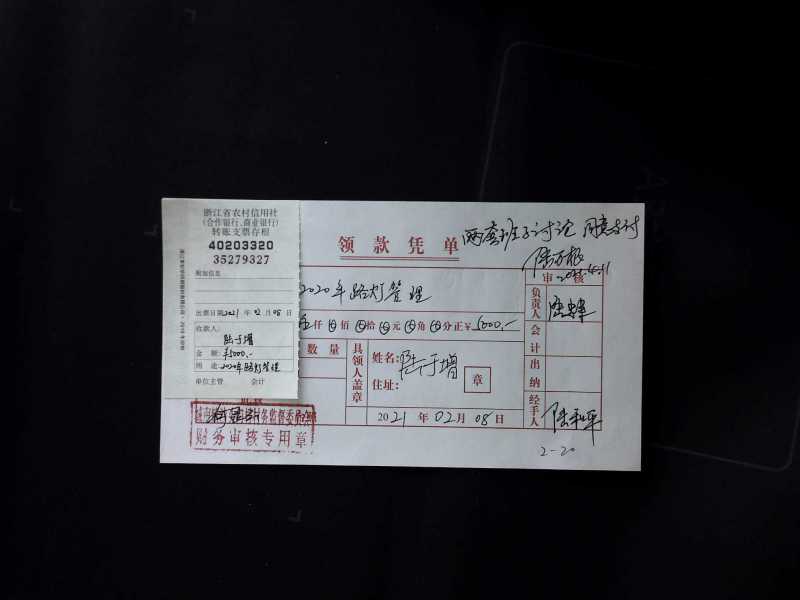 浙江省农村信用社
(合作银行、商业银行)
转账支票存根
40203320
35279327
附加信息
出票日期2021 年 02 月 08 日
收款人:
陆于增
金 额: ¥5000.-
用 途: 2020年路灯管理
单位主管 会计
领款凭单
两套班子讨论 同意支付
2020年路灯管理
伍仟 佰 拾 元 角 分正¥5000.-
数量
具领人盖章
姓名: 陆于增
住址:
章
2021 年 02 月 08 日
审 核
负责人
会计
出纳
经手人
2-20
务监督委
财务审核专用章